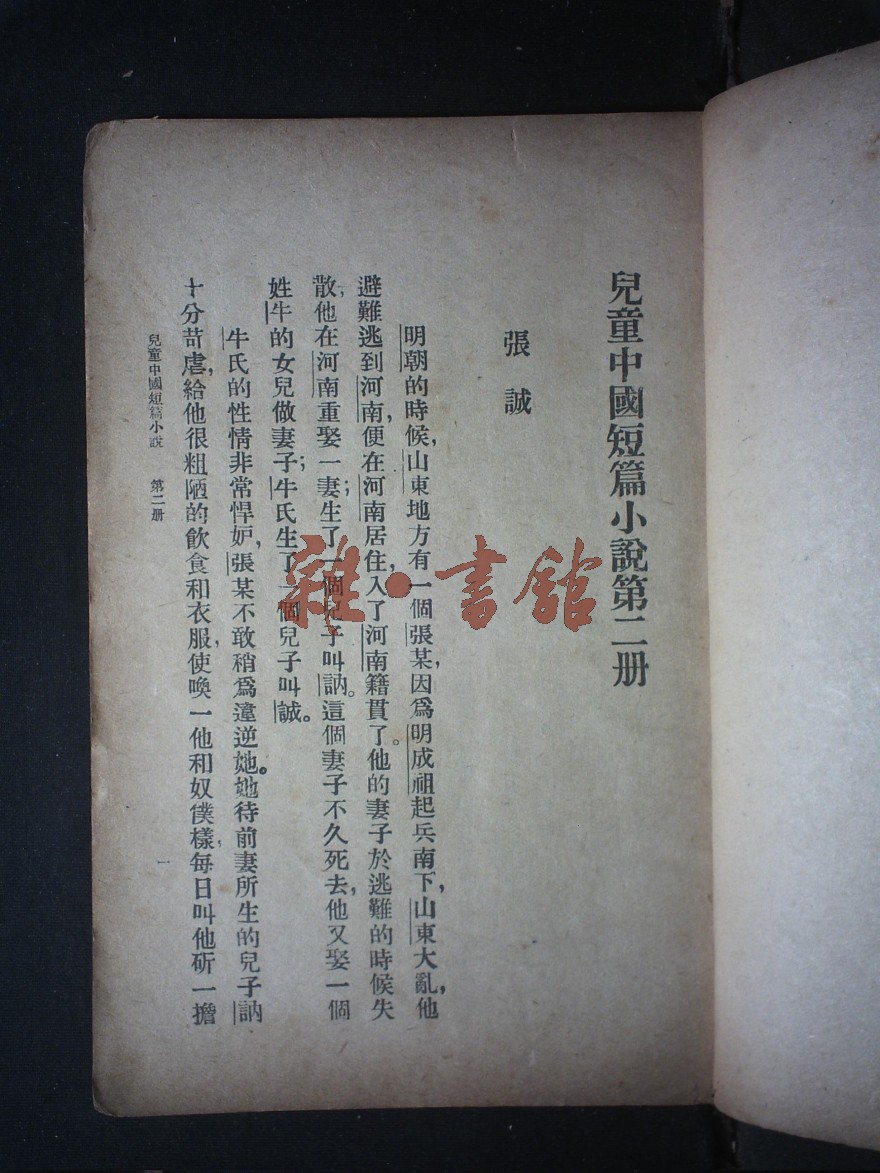 兒童中國短篇小說第二册
張誠
明朝的時候,山東地方有一個張某,因爲明成祖起兵南下,山東大亂,他
避難逃到河南,便在河南居住,入了河南籍貫了。他的妻子於逃難的時候失
散,他在河南重娶一妻;生了一個兒子叫訥。這個妻子不久死去,他又娶一個
姓牛的女兒做妻子;牛氏生了一個兒子叫誠。
牛氏的性情非常悍妒,張某不敢稍爲違逆她。她待前妻所生的兒子訥
十分苛虐,給他很粗陋的飲食和衣服,使喚一他和奴僕樣,每日叫他斫一擔
兒童中國短篇小說 第二册
一
雜·書館